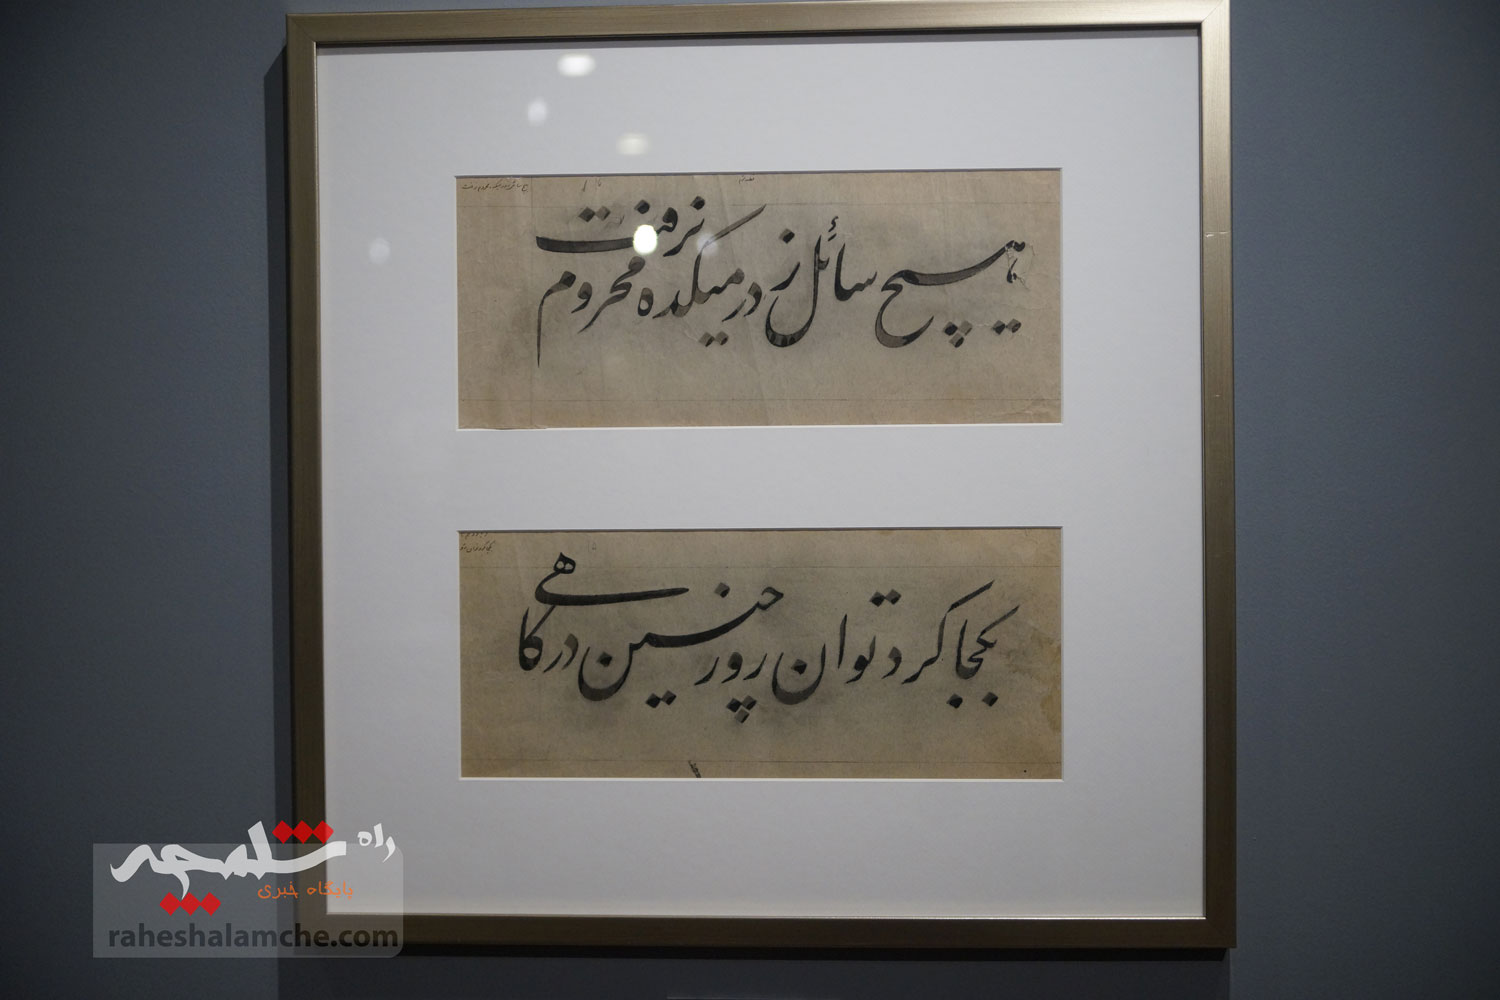 هیچ سائل ز در میکده محروم نرفت
بکجا کرد توان رو ز چنین درگاهی
راه شلمچه
پایگاه خبری
raheshalamche.com